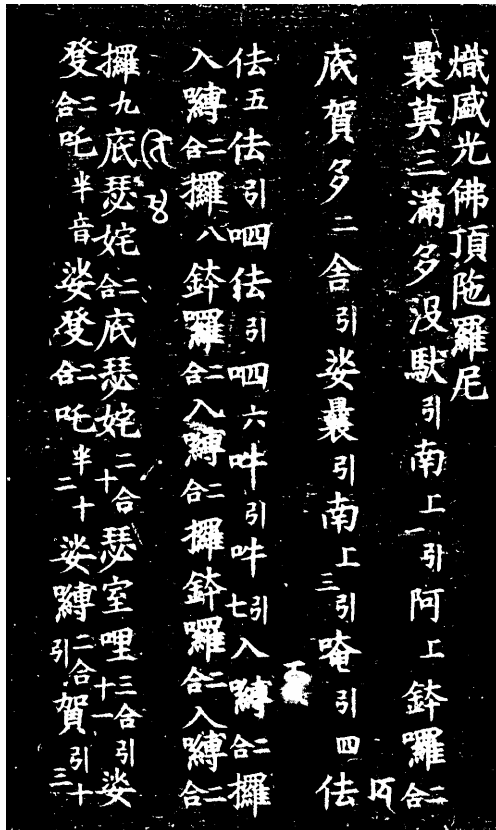 熾盛光佛頂陁羅尼
曩莫三滿多没馱引南上引一阿上鉢囉二合
底賀多二舍引娑曩引南上引三唵引四佉
佉五佉引呬佉引呬六吽引吽引七入嚩二合攞
入嚩二合攞八鉢囉二合入嚩二合攞鉢囉二合入嚩二合
攞九底瑟姹二合底瑟姹二合十瑟室哩三合引十一娑
癹二合吒半音娑癹二合吒半十二娑嚩二合引賀引十三